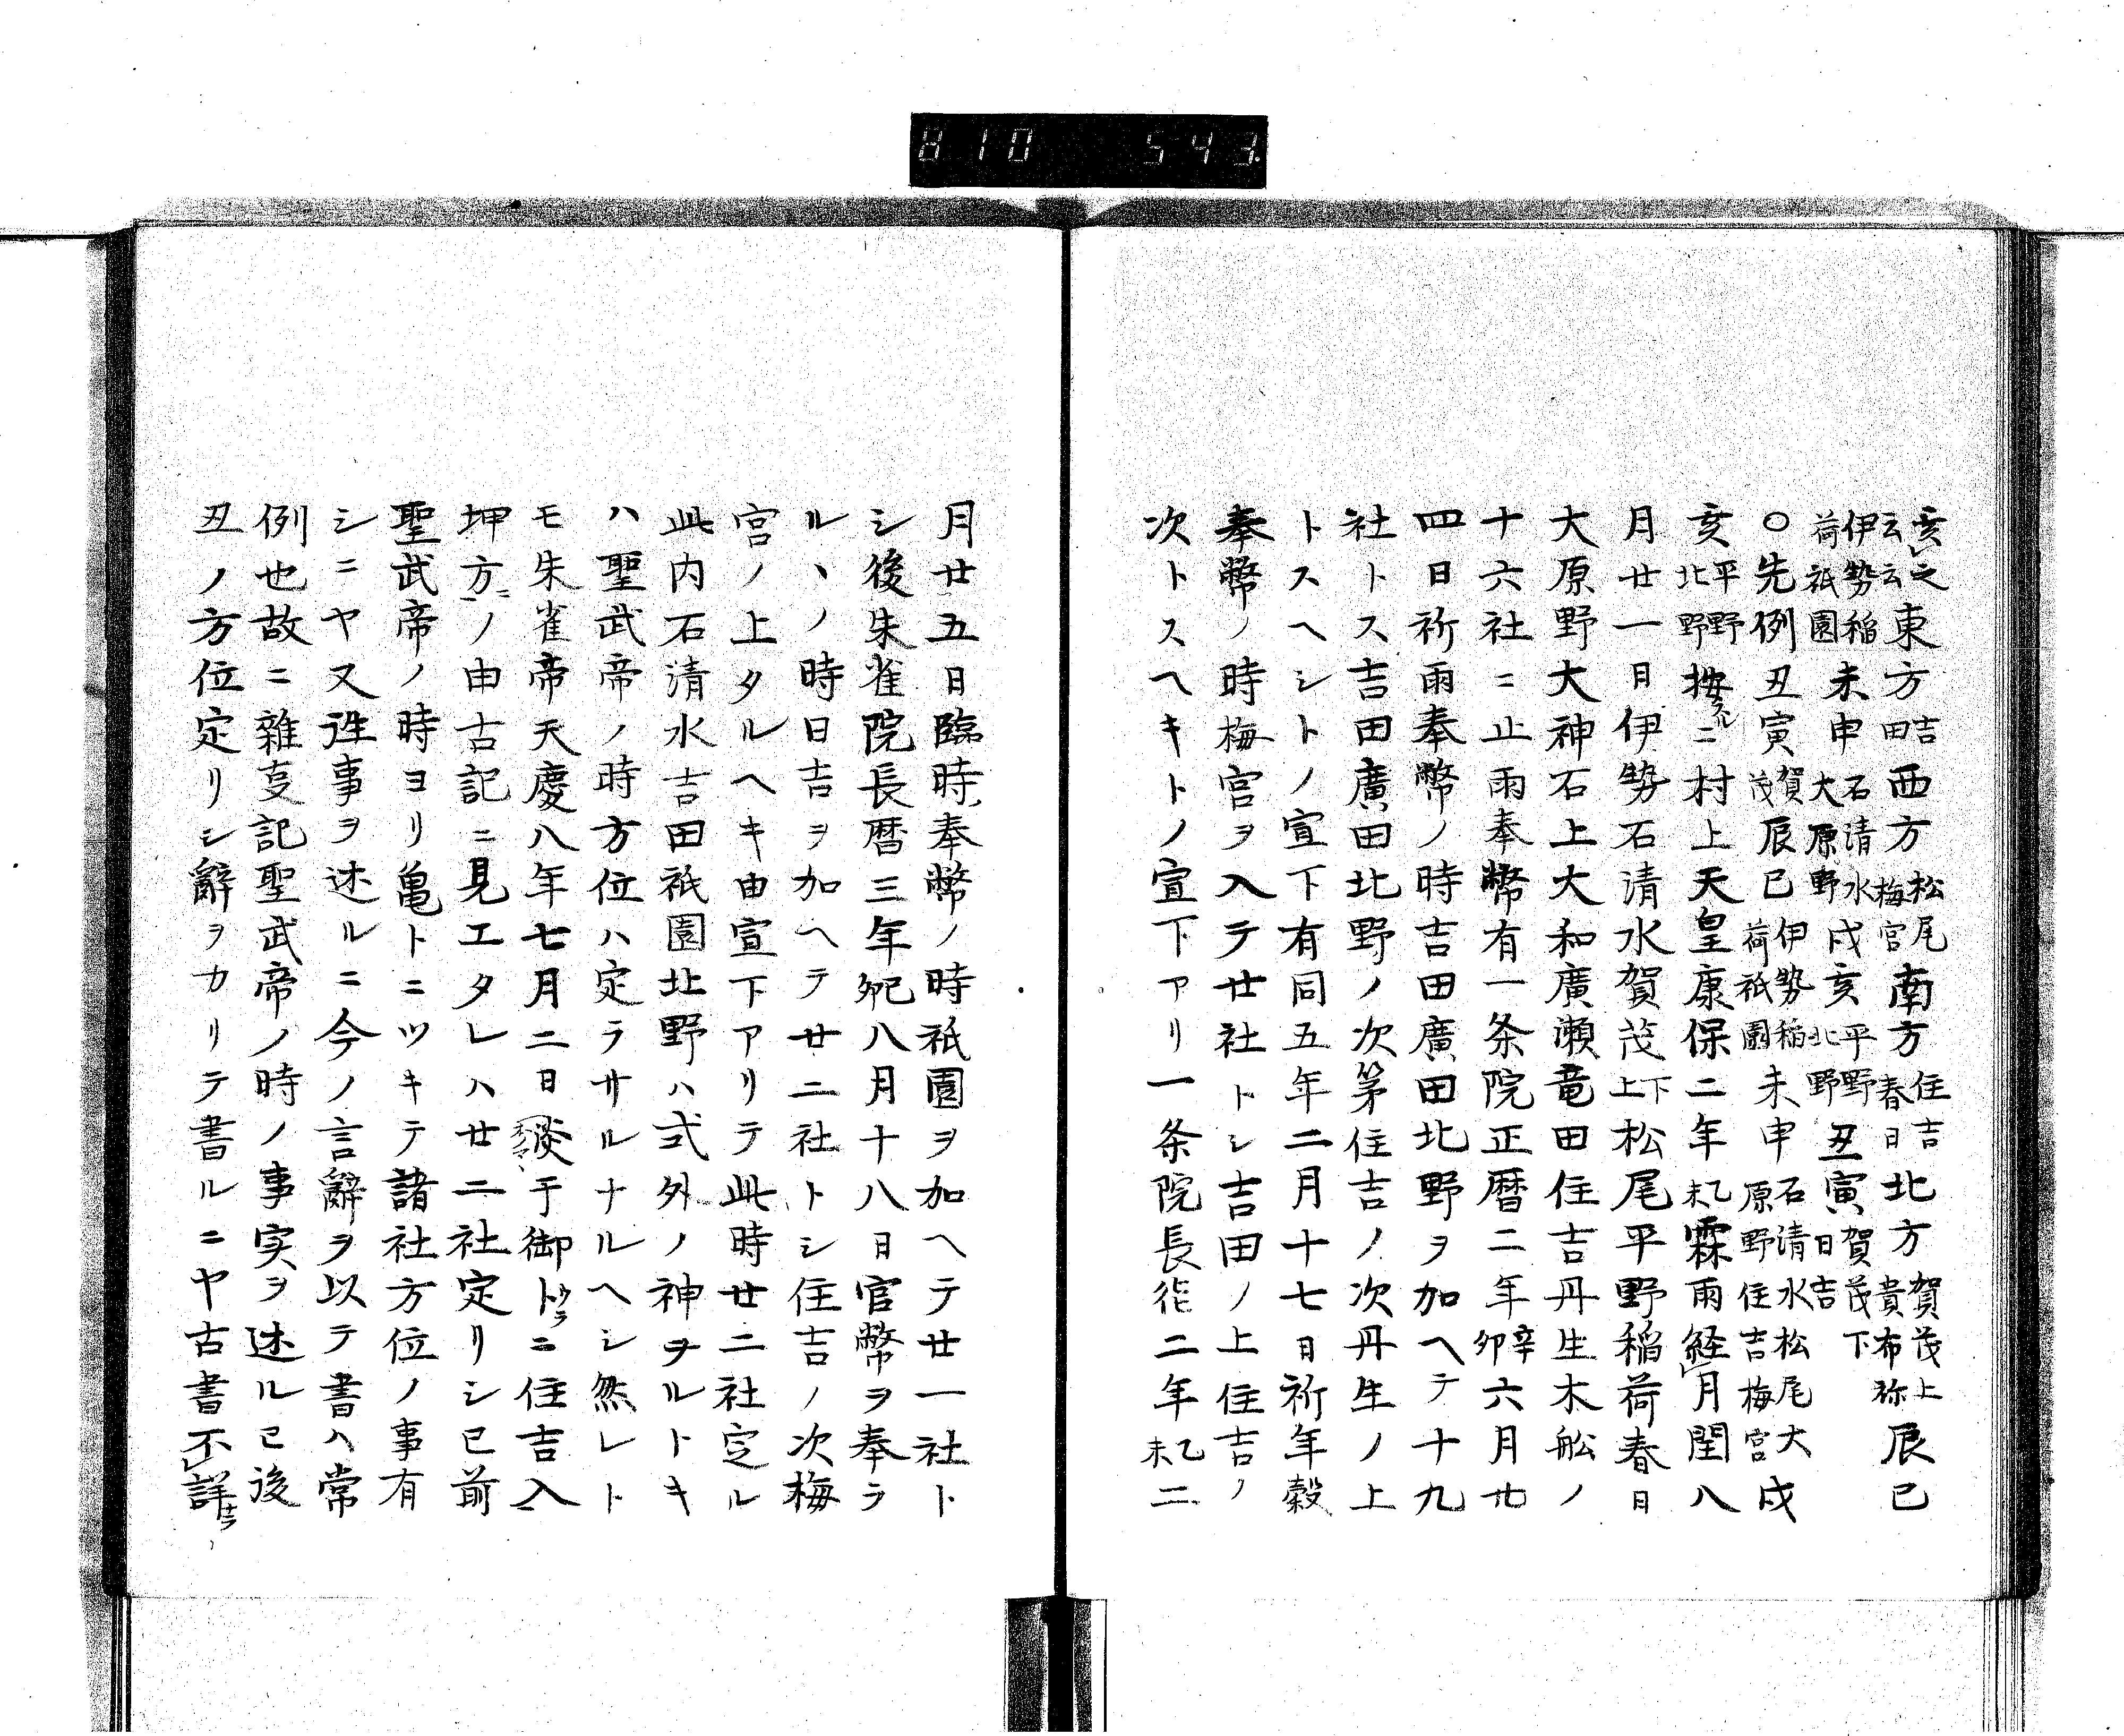 810 543
亥之東方吉西方松尾南方住吉北方賀茂上辰巳
云云 田 梅宮 春日 貴布祢
伊勢稲未申石清水戌亥平野丑寅賀茂下
荷祇園 大原野 北野 日吉
○先例丑寅賀茂辰巳伊勢稲荷祇園未申石清水松尾大原野住吉梅宮戌
亥平野北野按スルニ村上天皇康保二年乙未霖雨経月閏八
月廿一日伊勢石清水賀茂下上松尾平野稲荷春日
大原野大神石上大和廣瀬竜田住吉丹生木舩ノ
十六社ニ止雨奉幣有一条院正暦二年辛卯六月廿
四日祈雨奉幣ノ時吉田廣田北野ヲ加ヘテ十九
社トス吉田廣田北野ノ次第住吉ノ次丹生ノ上
トスヘシトノ宣下有同五年二月十七日祈年穀
奉幣ノ時梅宮ヲ入テ廿社トシ吉田ノ上住吉ノ
次トスヘキトノ宣下アリ一条院長徳二年乙未二
月廿五日臨時奉幣ノ時祇園ヲ加ヘテ廿一社ト
シ後朱雀院長暦三年八月十八日官幣ヲ奉ラ
ルヽノ時日吉ヲ加ヘテ廿二社トシ住吉ノ次梅
宮ノ上タルヘキ由宣下アリテ此時廿二社定ル
此内石清水吉田祇園北野ハ式外ノ神ヲルトキ
ハ聖武帝ノ時方位ハ定ラサルナルヘシ然レト
モ朱雀帝天慶八年七月二日于御トウラニ住吉入
坤方ニノ由古記ニ見エタレハ廿二社定リシ已前
聖武帝ノ時ヨリ亀トニツキテ諸社方位ノ事有
シニヤ又往事ヲ述ルニ今ノ言辭ヲ以テ書ハ常
例也故ニ雑㕝記聖武帝ノ時ノ事実ヲ述ルニ後
丑ノ方位定リシ辭ヲカリテ書ルニヤ古書不詳セラ